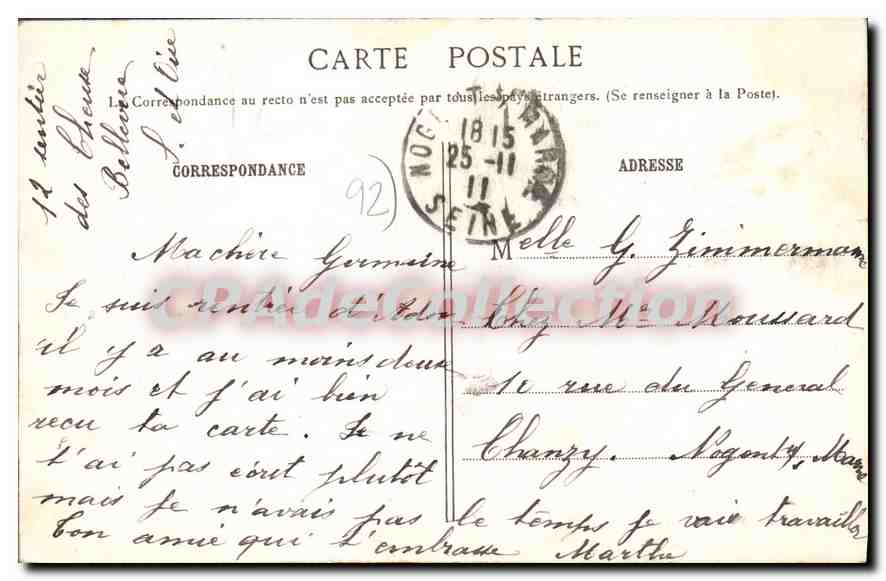 CARTE POSTALE
La Correspondance au recto n'est pas acceptée par tous les pays étrangers. (Se renseigner à la Poste).
CORRESPONDANCE
ADRESSE
12 sentier
des
Bellevue
S. et Oise
92)
NOGENT S/ MARNE
18 15
25 -11
11
SEINE
Ma chère Germaine
Je suis rentrée d'
il y a au moins deux
mois et j'ai bien
recu ta carte. Je ne
t'ai pas écrit plutôt
mais je n'avais pas le temps je vais travailler
Ton amie qui t'embrasse Marthe
Melle G. Zimmermann
Chez Mr Moussard
10 rue du General
Chanzy. Nogent s/ Marne
CPAdeCollection